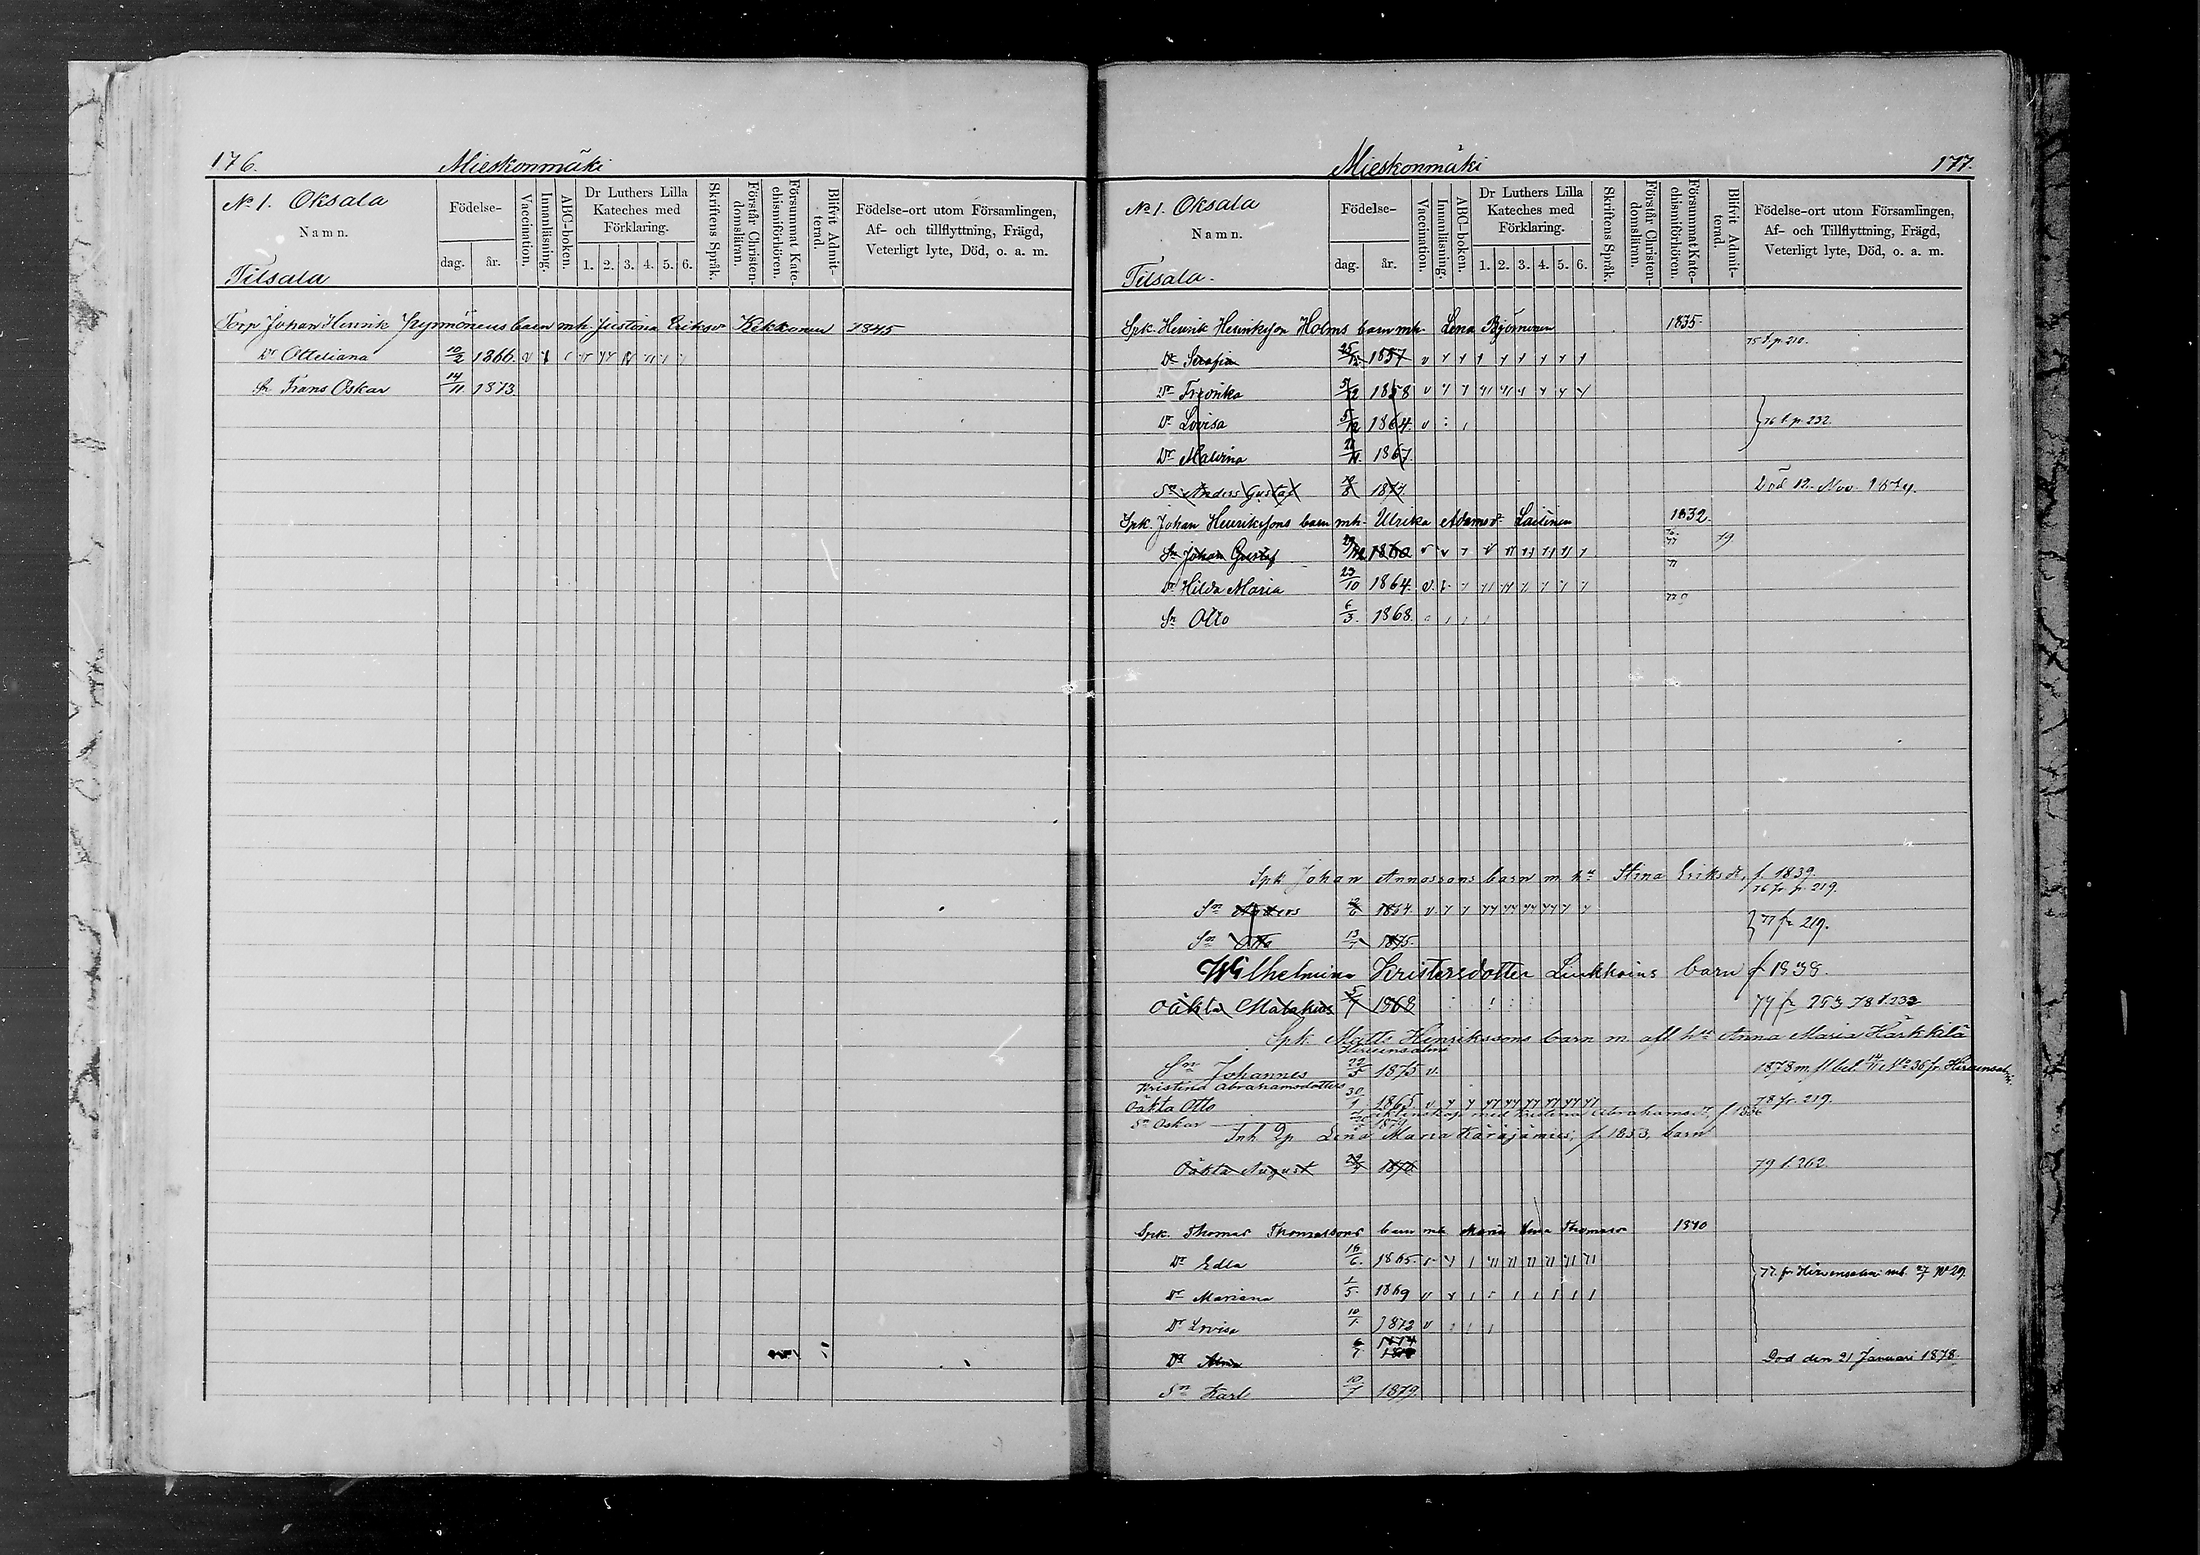 176. Mieskonmäki
No 1. Oksala
Namn.
Tilsala
Födelse-
dag. år.
Vaccination.
Innanläsning.
ABC-boken.
Dr Luthers Lilla
Kateches med
Förklaring.
1. 2. 3. 4. 5. 6.
Skriftens Språk.
Förstår Christen-
domslärann.
Försummat Kate-
chismiförhören.
Blifvit Admit-
terad.
Födelse-ort utom Församlingen,
Af- och tillflyttning, Frägd,
Veterligt lyte, Död, o. a. m.
Torp Johan Henrik barn mh Justina Eriksdr Kekkonen 1845
Dr Otteliana 10/2 1866
Sn Frans Oskar 14/11 1873
Mieskonmäki 177.
No 1. Oksala
Namn.
Tilsala.
Födelse-
dag. år.
Vaccination.
Innanläsning.
ABC-boken.
Dr Luthers Lilla
Kateches med
Förklaring.
1. 2. 3. 4. 5. 6.
Skriftens Språk.
Förstår Christen-
domslärann.
Försummat Kate-
chismiförhören.
Blifvit Admit-
terad.
Födelse-ort utom Församlingen,
Af- och Tillflyttning, Frägd,
Veterligt lyte, Död, o. a. m.
Spk. Henrik Henriksson Holms barn mh. Lena Björninen 1835
Dr Serafia 1857 75 f. p. 210.
Dr Fredrika 5/12 1858
Dr Lovisa 5/12 1864 76 t. p. 232.
Dr Malvina 1867.
Sn Anders Gustaf Död 12. Nov.
Spk. Johan Henrikssons barn mh. Ulrika Adamsdr Laitinen 1832.
Sn Johan Gustaf 1860 79
Dr Hilda Maria 23/10 1864. 77
Sn Otto 6/3. 1868.
Spk Johan Annossons barn m hu Stina Eriksdr, f. 1839.
76 fr p. 219.
Sn Anders 1864
77 fr 219.
Sn Otto 13/7 1875.
Wilhelmina Kristersdotter Luukkoins barn f 1838.
Oäkta Matatias 5/7 1868 77 fr 253 78 t. 232
Spk. Matts Henrikssons barn m afl. hu Anna Maria Härkkilä
Hirvensalmi
Sn Johannes 22/5 1875 1878 m fl bet No 36 fr Hirvensalmi.
Kristina Abrahamsdotters
Oäkta Otto 30/1 1865 78 fr. 219.
äktenskap med Kristina Abrahamsdr, f 1836
Sn Oskar 1879
Inh Dp Lena Maria Käräjämies, f. 1853, barn
Oäkta August 1876 79 t. 262.
Spk. Thomas Thomassons barn mh Maria Lena Thomasdr 1840
Dr Edla 16/6. 1865.
77. fr Hirvensalmi mb. No 29.
Dr Mariana 1/5. 1869
Dr Lovisa 10/1. 1872
Dr Alma 6/7 1874 Död den 21 Januari 1878.
Sn Karl 10/7 1879.